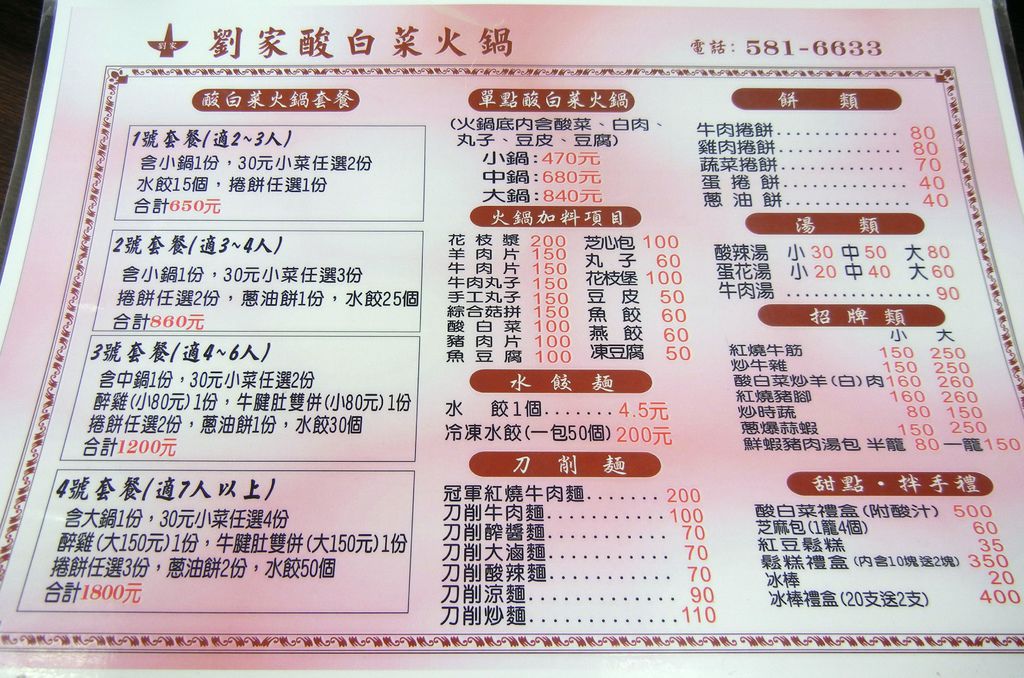 劉家
劉家酸白菜火鍋
電話：581-6633
酸白菜火鍋套餐
1號套餐(適2~3人)
含小鍋1份，30元小菜任選2份
水餃15個，捲餅任選1份
合計650元
2號套餐(適3~4人)
含小鍋1份，30元小菜任選3份
捲餅任選2份，蔥油餅1份，水餃25個
合計860元
3號套餐(適4~6人)
含中鍋1份，30元小菜任選2份
醉雞(小80元)1份，牛腱肚雙併(小80元)1份
捲餅任選2份，蔥油餅1份，水餃30個
合計1200元
4號套餐(適7人以上)
含大鍋1份，30元小菜任選4份
醉雞(大150元)1份，牛腱肚雙併(大150元)1份
捲餅任選3份，蔥油餅2份，水餃50個
合計1800元
單點酸白菜火鍋
(火鍋底內含酸菜、白肉、
丸子、豆皮、豆腐)
小鍋:470元
中鍋:680元
大鍋:840元
火鍋加料項目
花枝漿 200 芝心包 100
羊肉片 150 丸子 60
牛肉片 150 花枝堡 100
牛肉丸子 150 豆皮 50
手工丸子 150 魚餃 60
綜合菇拼 150 燕餃 60
酸白菜 100 凍豆腐 50
豬肉片 100
魚豆腐 100
水餃麵
水餃1個.......4.5元
冷凍水餃(一包50個)200元
刀削麵
冠軍紅燒牛肉麵........200
刀削牛肉麵............100
刀削醡醬麵............70
刀削大滷麵............70
刀削酸辣麵............70
刀削涼麵..............90
刀削炒麵..............110
餅類
牛肉捲餅..............80
雞肉捲餅..............80
蔬菜捲餅..............70
蛋捲餅................40
蔥油餅................40
湯類
酸辣湯 小30 中50 大80
蛋花湯 小20 中40 大60
牛肉湯..................90
招牌類
小 大
紅燒牛筋 150 250
炒牛雜 150 250
酸白菜炒羊(白)肉 160 260
紅燒豬腳 160 260
炒時蔬 80 150
蔥爆蒜蝦 150 250
鮮蝦豬肉湯包 半籠 80 一籠 150
甜點・拌手禮
酸白菜禮盒(附酸汁) 500
芝麻包(1籠4個) 60
紅豆鬆糕 35
鬆糕禮盒(內含10塊送2塊) 350
冰棒 20
冰棒禮盒(20支送2支) 400